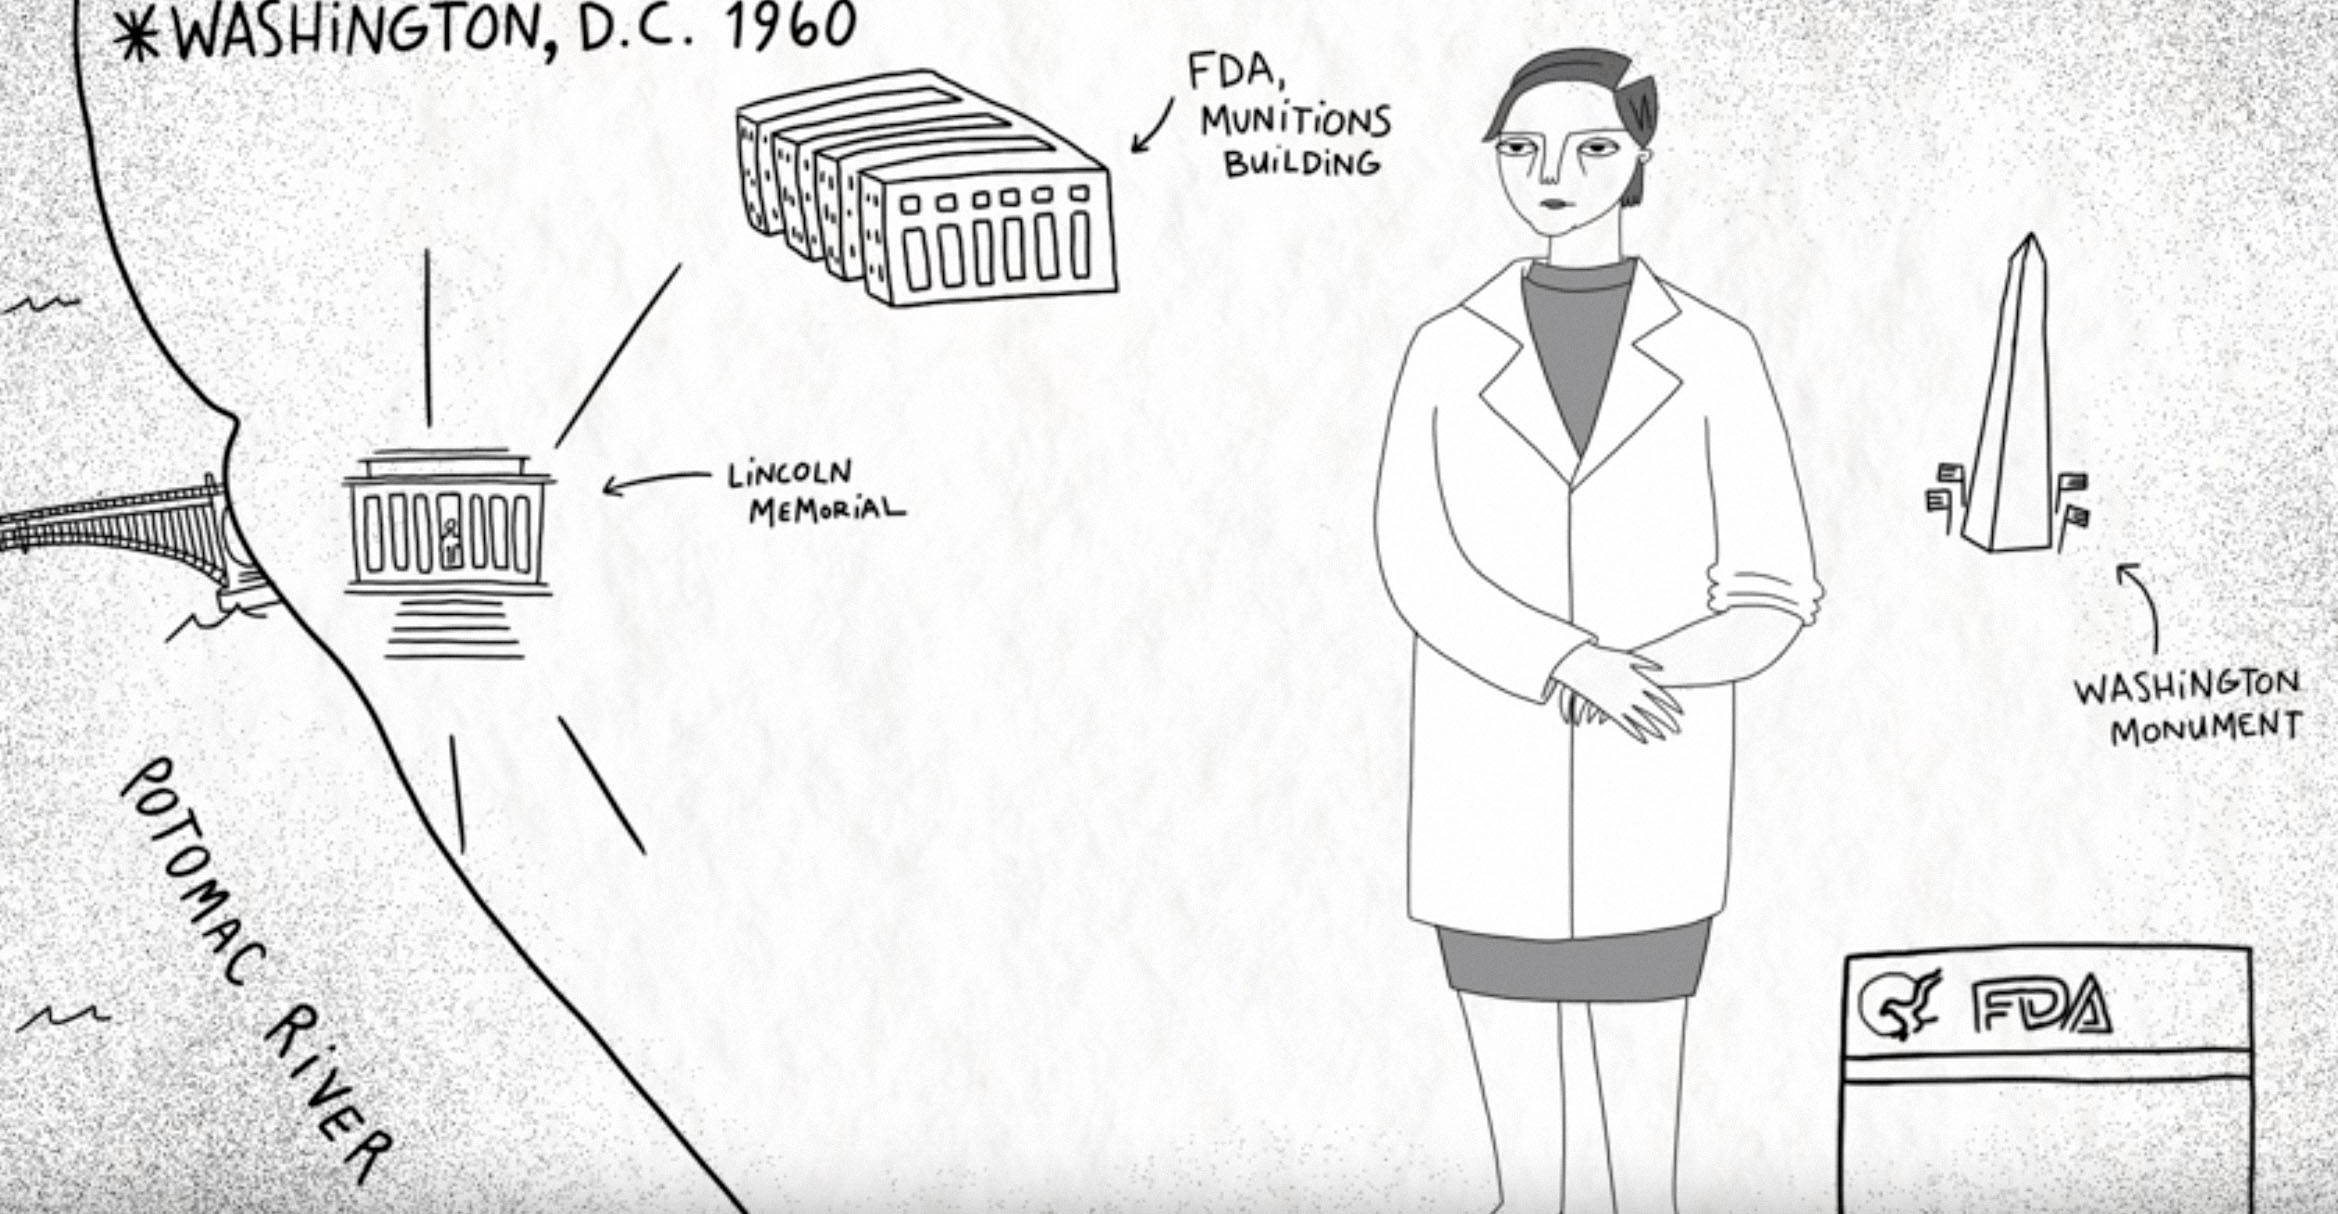 *WASHINGTON, D.C. 1960
FDA,
MUNITIONS
BUILDING
LINCOLN
MEMORIAL
WASHINGTON
MONUMENT
POTOMAC RIVER
FDA